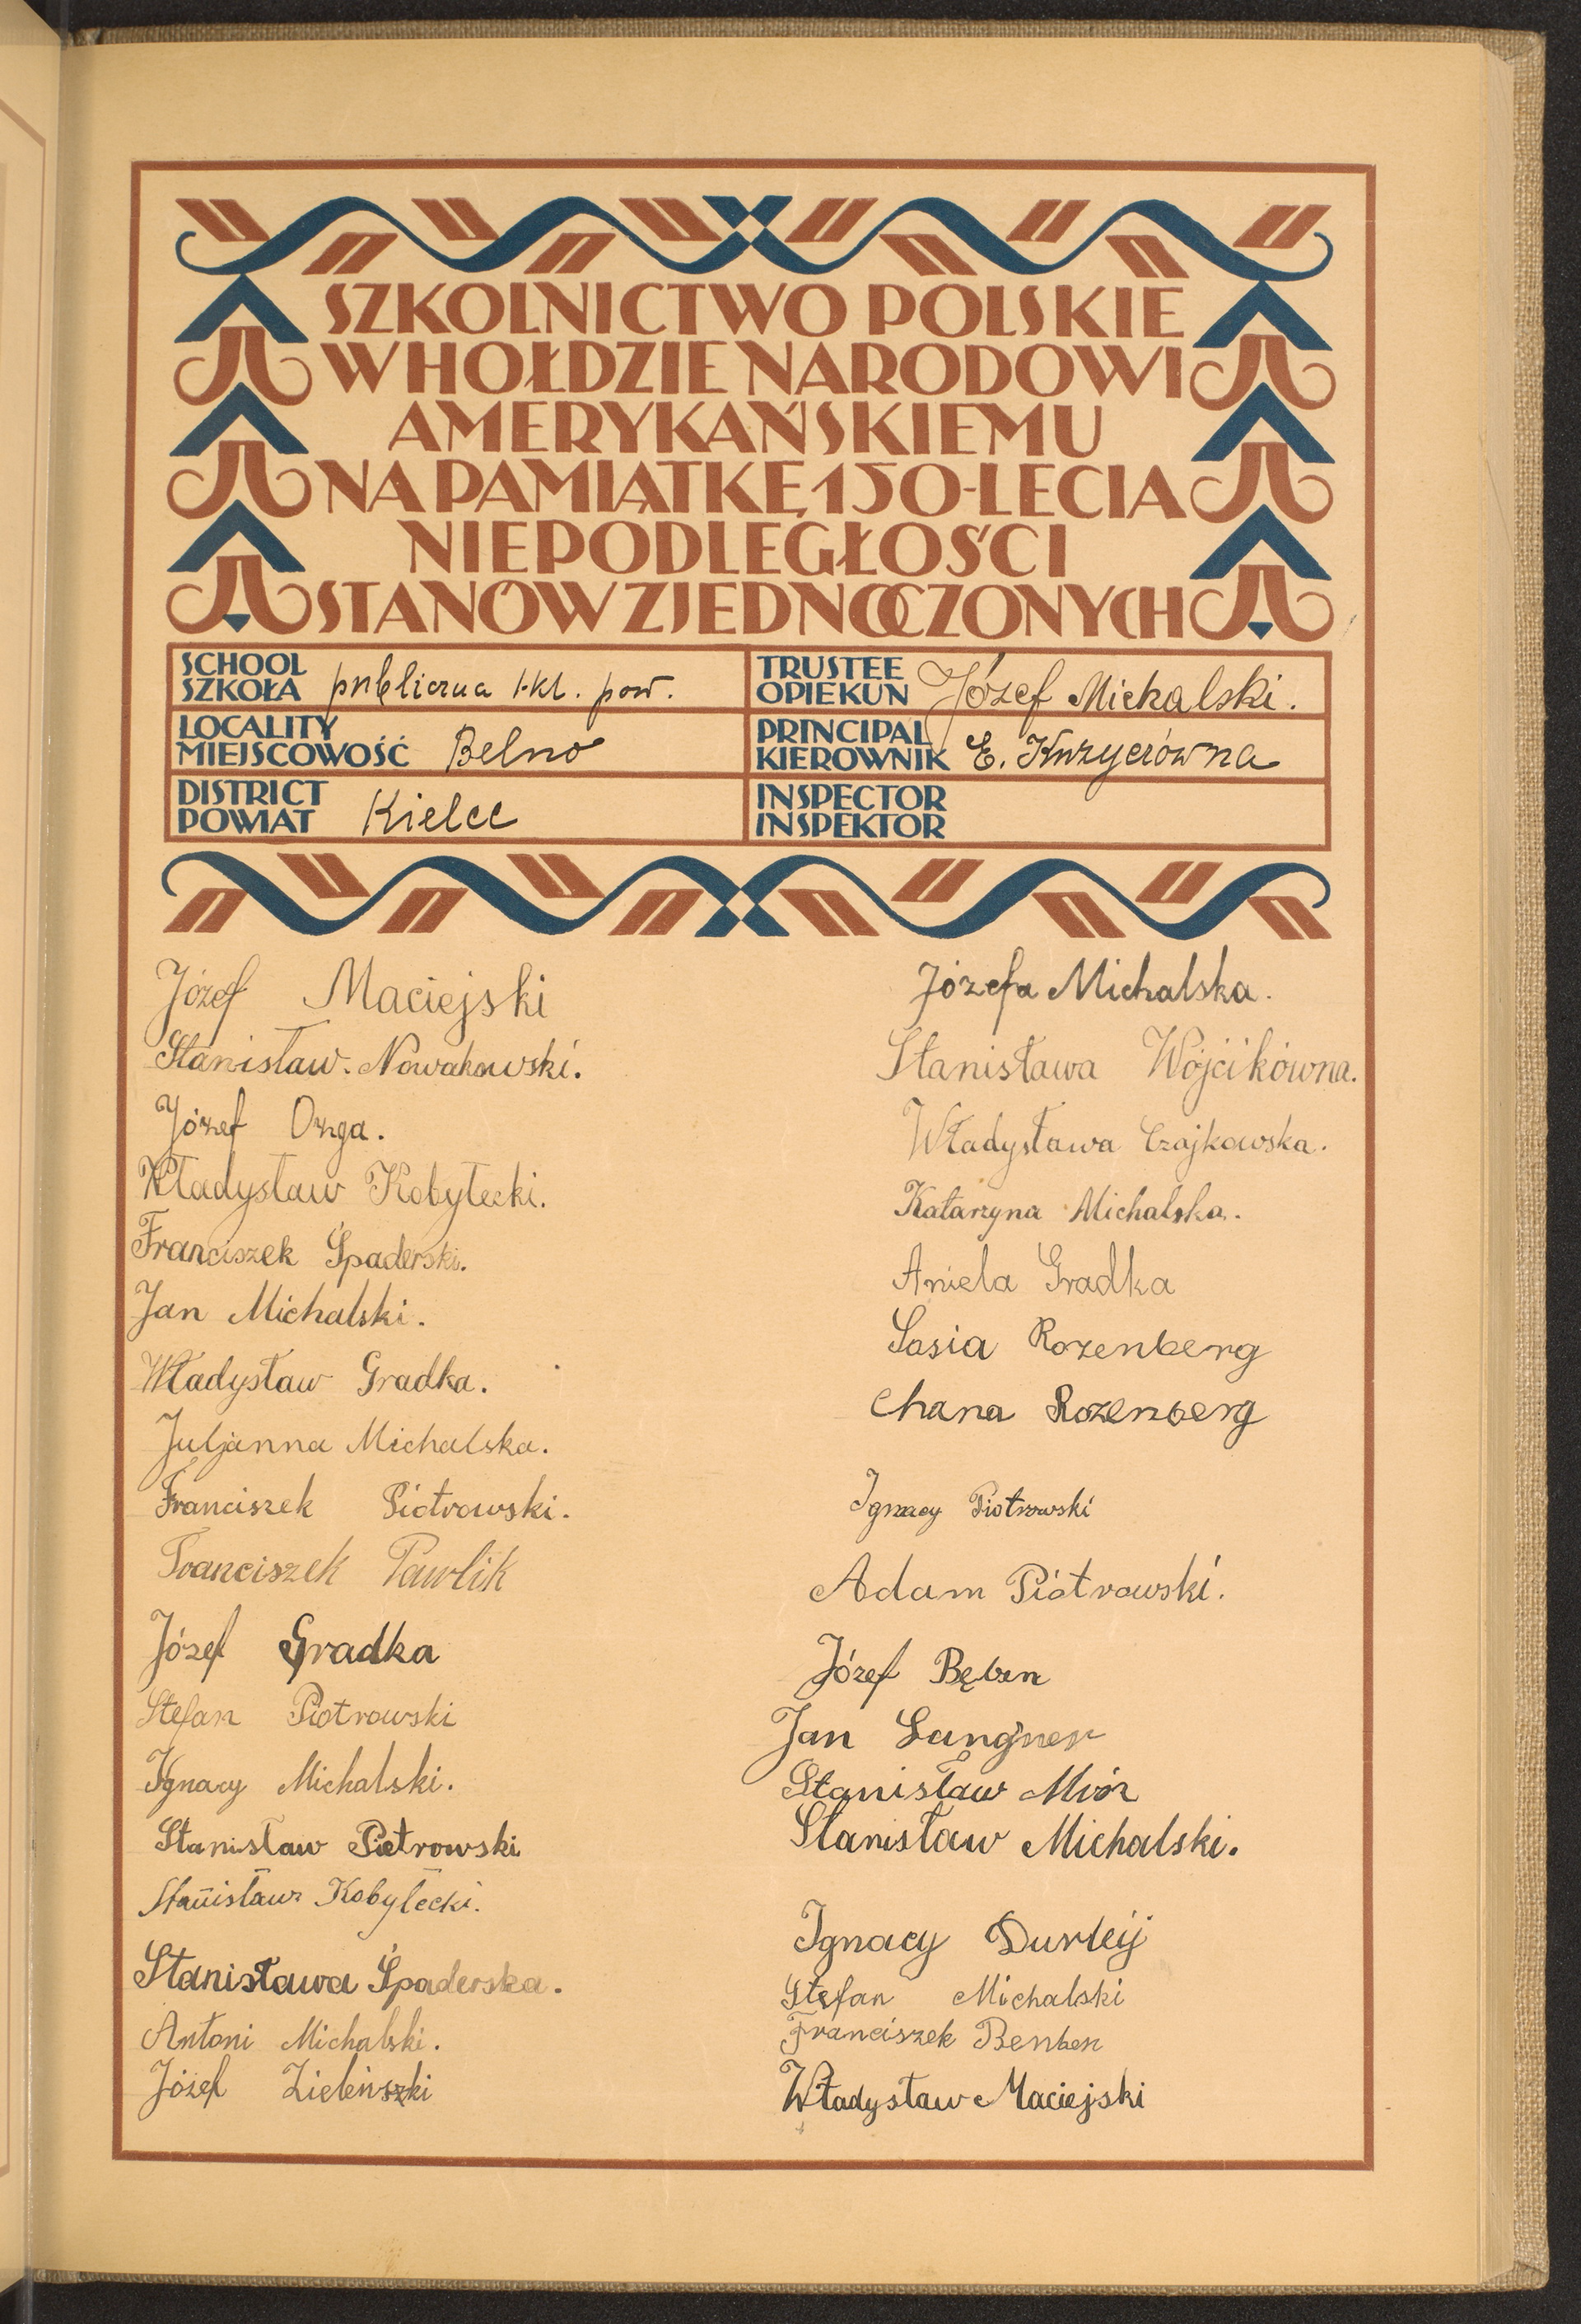 SZKOLNICTWO POLSKIE
W HOŁDZIE NARODOWI
AMERYKAŃSKIEMU
NA PAMIĄTKĘ 150-LECIA
NIEPODLEGŁOŚCI
STANÓW ZJEDNOCZONYCH
SCHOOL
SZKOŁA publiczna 1-kl. pow.
TRUSTEE
OPIEKUN Józef Michalski.
LOCALITY
MIEJSCOWOŚĆ Belno
PRINCIPAL
KIEROWNIK E.
DISTRICT
POWIAT Kielce
INSPECTOR
INSPEKTOR
Józef Maciejski
Stanisław. Nowakowski.
Józef Ozga.
Władysław Kobyłecki.
Franciszek Spaderski.
Jan Michalski.
Władysław Gradka.
Juljanna Michalska.
Franciszek Piotrowski.
Franciszek Pawlik
Józef Gradka
Stefan Piotrowski
Ignacy Michalski.
Stanisław Pietrowski
Stanisław Kobyłecki.
Stanisława Spaderska.
Antoni Michalski.
Józef Zielińszki
Józefa Michalska.
Stanisława Wójcikówna.
Władysława Czajkowska.
Katarzyna Michalska.
Aniela Gradka
Sasia Rozenberg
Chana Rozenberg
Ignacy Piotrowski
Adam Piotrowski.
Józef Bęben
Jan Langner
Stanisław Mróz
Stanisław Michalski.
Ignacy
Stefan Michalski
Franciszek Benben
Władysław Maciejski